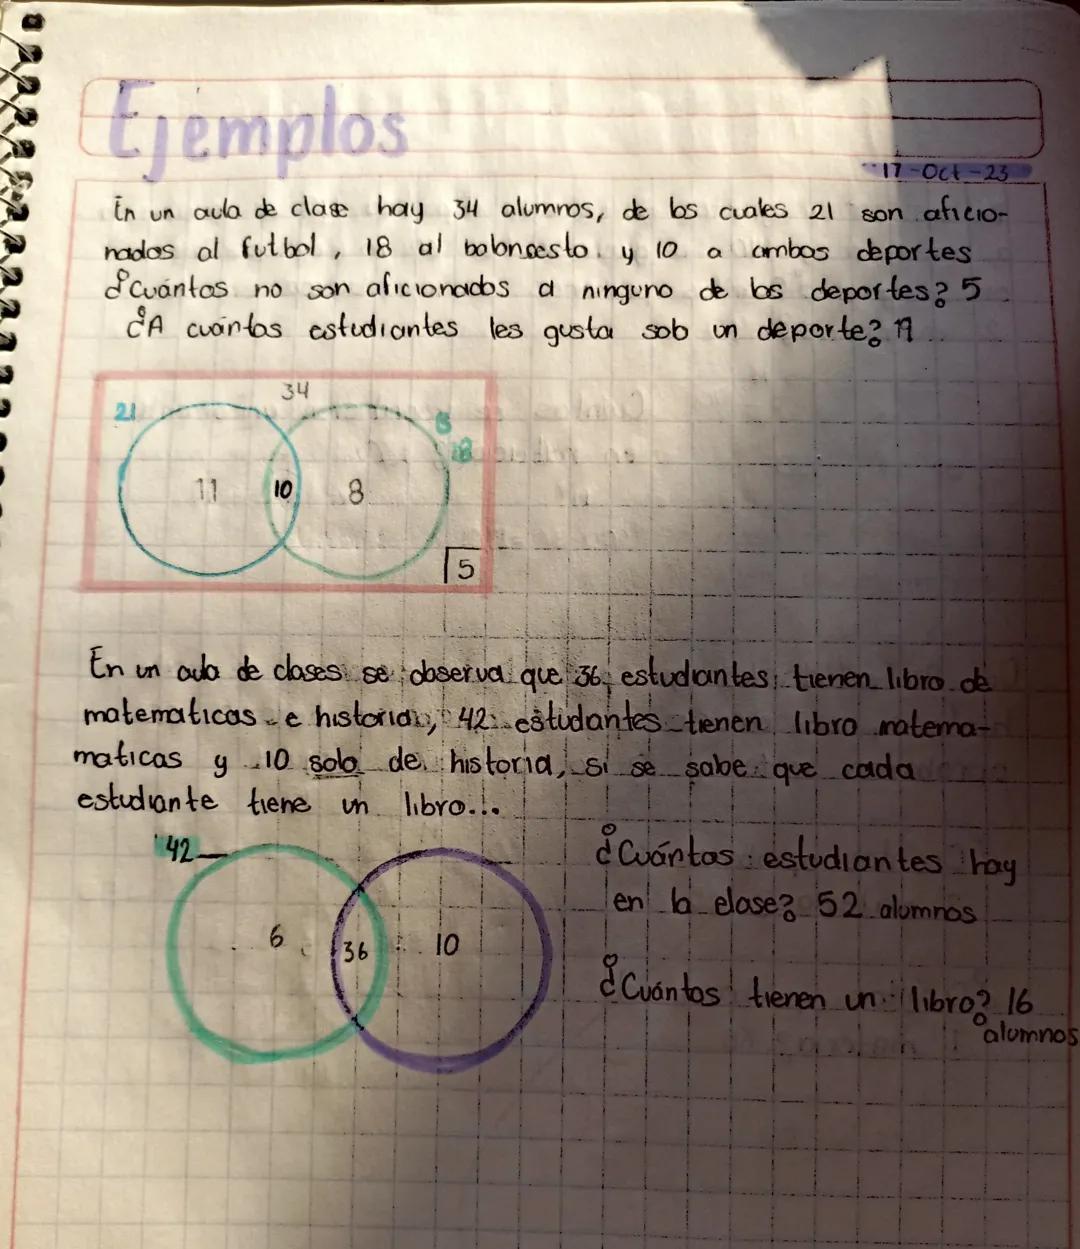 Ejemplos
17-Oct-23
En un aula de clase hay 34 alumnos, de los cuales 21 son aficio-
nados al futbol, 18 al baloncesto y 10 a ambos deportes
¿Cuántos no son aficionados a ninguno de los deportes? 5
¿A cuántos estudiantes les gusta solo un deporte? 19
34
21
B
18
11 10 8
5
En un aula de clases se observa que 36 estudiantes tienen libro de
matematicas e historia, 42 estudantes tienen libro matema-
maticas y 10 solo de historia, si se sabe que cada
estudiante tiene un libro...
42
6 36 10
¿Cuántos estudiantes hay
en la clase? 52 alumnos
¿Cuántos tienen un libro? 16
alumnos